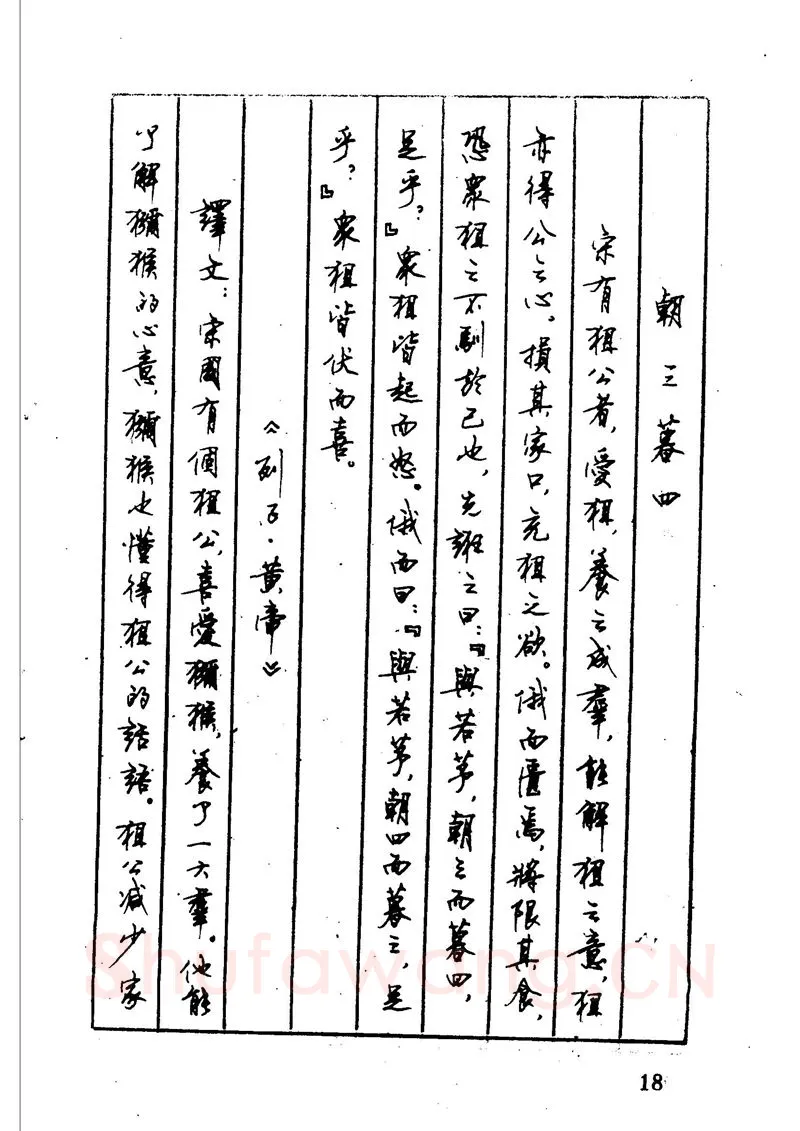 朝三暮四
宋有狙公者，愛狙，養之成羣，能解狙之意，狙
亦得公之心。損其家口，充狙之欲。俄而匱焉，將限其食，
恐衆狙之不馴於己也，先誑之曰：『與若芧，朝三而暮四，
足乎？』衆狙皆起而怒。俄而曰：『與若芧，朝四而暮三，足
乎？』衆狙皆伏而喜。
《列子·黄帝》
譯文：宋國有個狙公，喜愛獼猴，養了一大羣。他能
了解獼猴的心意，獼猴也懂得狙公的話語。狙公减少家
Shufawang.CN
18